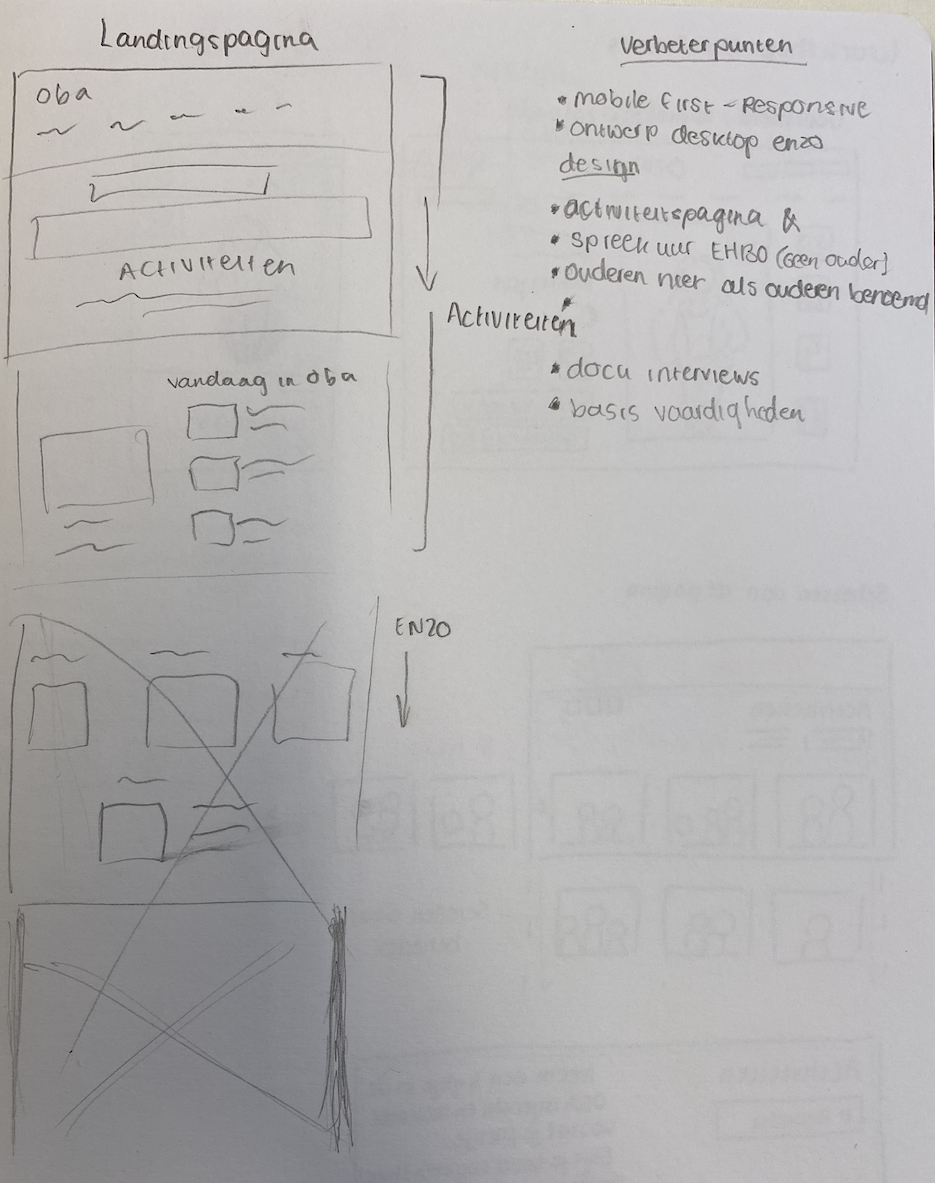 Landingspagina
oba
ACTIVITEITEN
vandaag in oba
Activiteiten
ENZO
verbeterpunten
• mobile first - Responsive
• ontwerp desktop enzo
design
• activiteitspagina &
• spreekuur EHBO (Geen ouder)
• ouderen neer als ouderen benoemd
• docu interviews
• basis vaardigheden